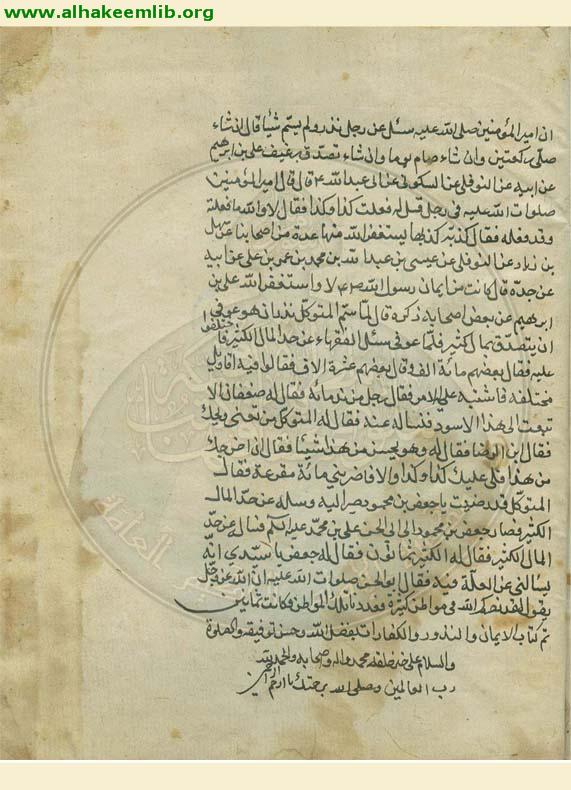 www.alhakeemlib.org
ان امير المؤمنين صلى الله عليه سئل عن رجل نذر ولم يسم شيئا قال ان شاء
صلى ركعتين وان شاء صام يوما وان شاء تصدق برغيف علي بن ابرهيم
عن ابيه عن النوفلي عن السكوني عن ابي عبد الله ع قال قال امير المؤمنين
صلوات الله عليه في رجل قيل له فعلت كذا وكذا فقال لا والله ما فعلته
وقد فعله فقال كذبة كذبها يستغفر الله منها عدة من اصحابنا عن سهل
بن زياد عن النوفلي عن عيسى بن عبد الله بن محمد بن عمر بن علي عن ابيه
عن جده قال كانت من ايمان رسول الله ص لا واستغفر الله علي بن
ابرهيم عن بعض اصحابه ذكره قال لما سم المتوكل نذر ان هو عوفي
ان يتصدق بمال كثير فلما عوفي سئل الفقهاء عن حد المال الكثير فاختلفوا
عليه فقال بعضهم مائة الف وقال بعضهم عشرة الاف فقالوا فيه اقاويل
مختلفة فاشتبه عليه الامر فقال رجل من ندمائه يقال له صفعان الا
تبعث الى هذا الاسود فنساله عنه فقال له المتوكل من تعنى ويحك
فقال ابن الرضا فقال له وهو يحسن من هذا شيئا فقال ان اخرجك
من هذا فلي عليك كذا وكذا والا فاضربني مائة مقرعة فقال
المتوكل قد رضيت يا جعفر بن محمود صر اليه وسله عن حد المال
الكثير فصار جعفر بن محمود الى ابي الحسن علي بن محمد عليه السلام فساله عن حد
المال الكثير فقال له الكثير ثمانون فقال له جعفر يا سيدي انه
يسالني عن العلة فيه فقال ابو الحسن صلوات الله عليه ان الله عز وجل
يقول لقد نصركم الله في مواطن كثيرة فعددنا تلك المواطن فكانت ثمانين
تم كتاب الايمان والنذور والكفارات بفضل الله وحسن توفيقه والصلوة
والسلام على خير خلقه محمد واله واصحابه والحمد لله
رب العالمين وصلى الله برحمتك يا ارحم الراحمين